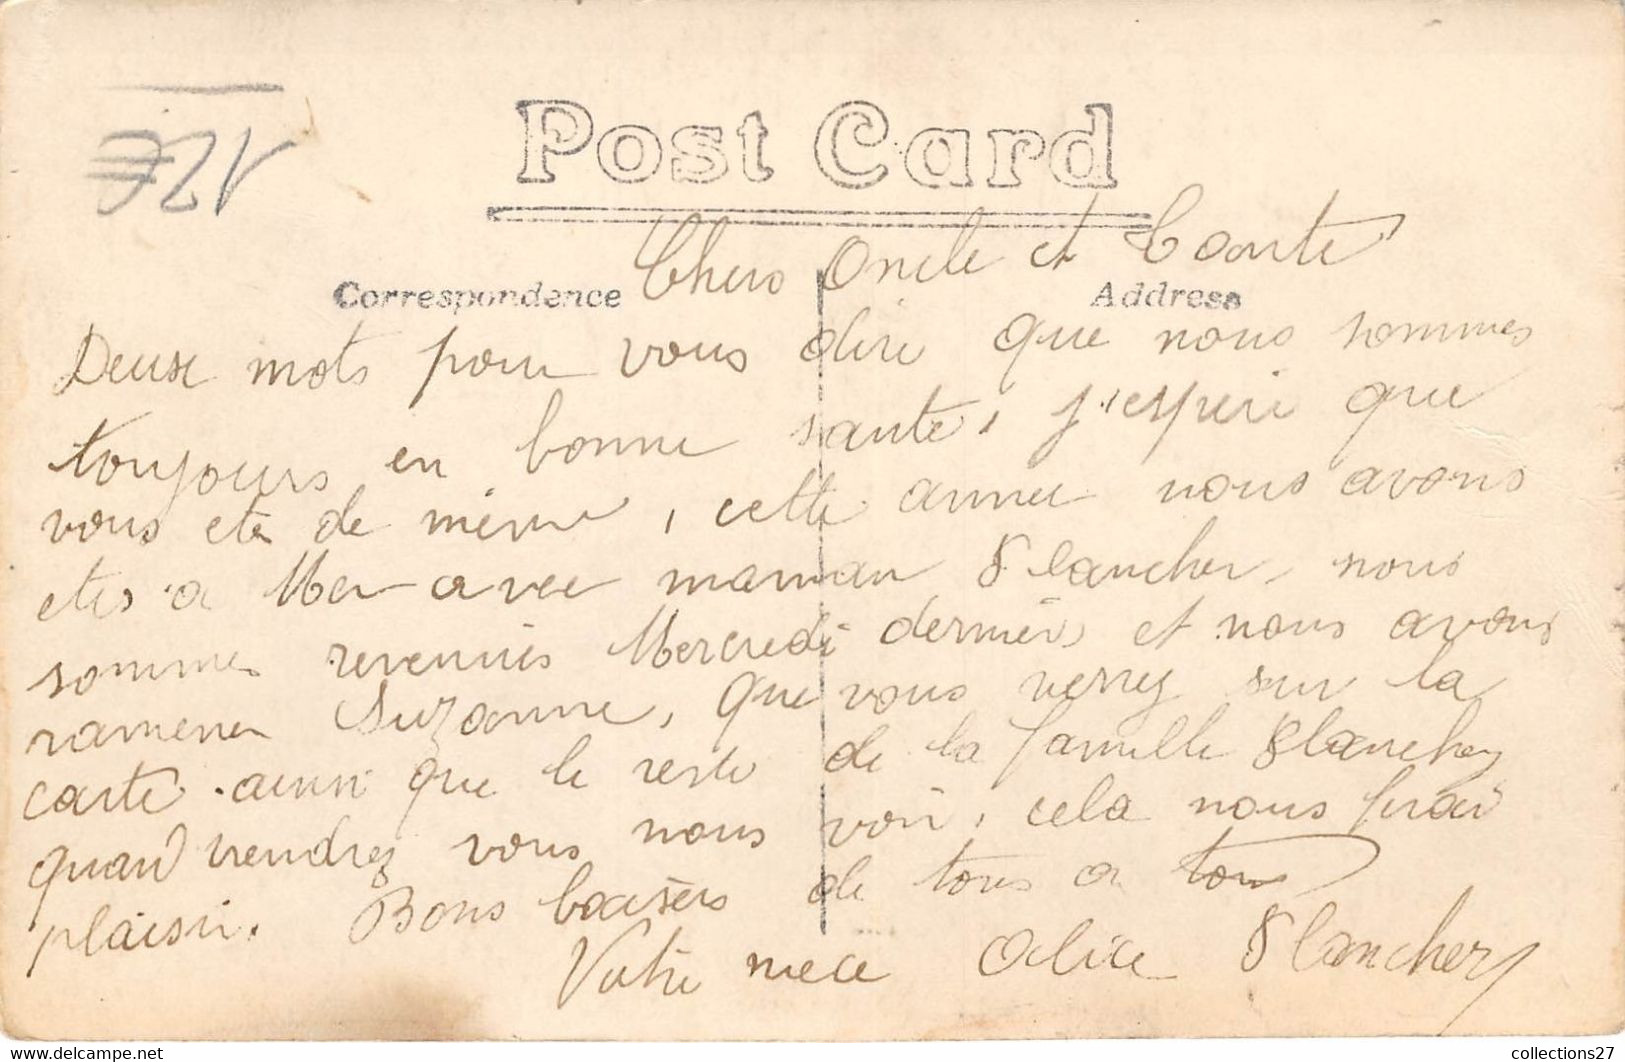 Post Card
Correspondence
Address
Chers Oncle et Tante
Deux mots pour vous dire que nous sommes
toujours en bonne santé, j'espere que
vous etes de même, cette annee nous avons
etes a Mer avec maman Blancher, nous
sommes revenues Mercredi dernier, et nous avons
ramener Suzanne, que vous verrez sur la
carte ainsi que le reste de la famille Blanchery
quand viendrez vous nous voir, cela nous ferai
plaisir. Bons baisers de tous a tous
Votre niece Alice Blanchery
collections27